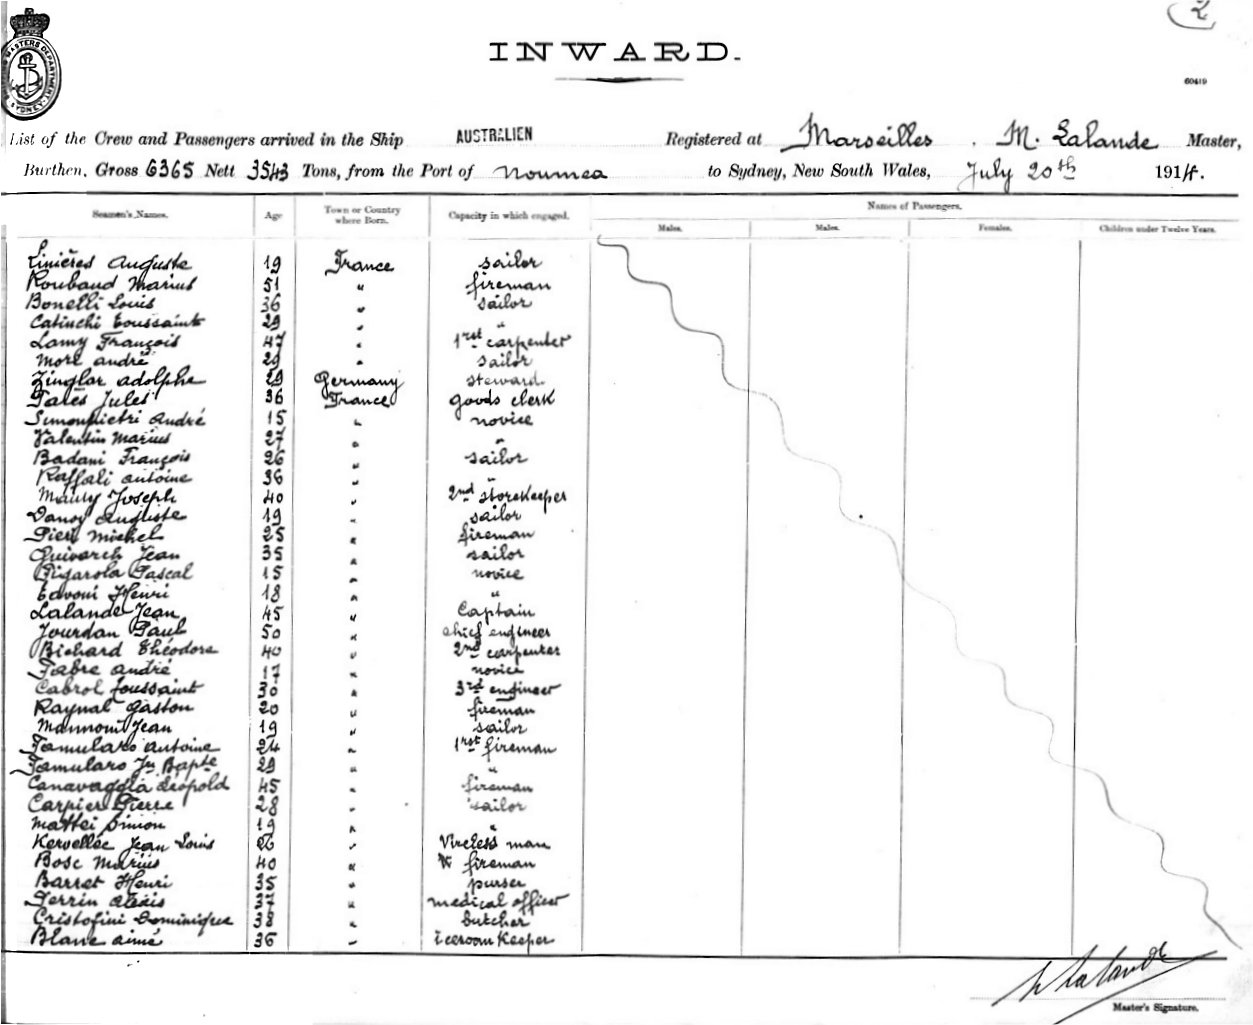 2
MASTERS DEPARTMENT
SYDNEY
INWARD.
60419
List of the Crew and Passengers arrived in the Ship AUSTRALIEN Registered at Marseilles . M. Lalande Master,
Burthen, Gross 6365 Nett 3543 Tons, from the Port of Noumea to Sydney, New South Wales, July 20th 1914.
Seamen's Names. Age Town or Country where Born. Capacity in which engaged. Names of Passengers.
Males. Males. Females. Children under Twelve Years.
Linières Auguste 19 France sailor
Roubaud Marius 51 " fireman
Bonelli Louis 36 " sailor
Catinchi Toussaint 29 " "
Lamy François 47 " 1rst carpenter
Moré André 29 " sailor
Zinglar Adolphe 29 Germany steward
Talès Jules 36 France goods clerk
Simonpietri André 15 " novice
Valentin Marius 27 " "
Badani François 26 " sailor
Raffali Antoine 36 " "
Maury Joseph 40 " 2nd storekeeper
Danoy Auguste 19 " sailor
Pieri Michel 25 " fireman
Quivarch Jean 35 " sailor
Pigarola Pascal 15 " novice
Henri 18 " "
Lalande Jean 45 " Captain
Jourdan Paul 50 " chief engineer
Bichard Théodore 40 " 2nd carpenter
Fabre André 17 " novice
Cabrol Toussaint 30 " 3rd engineer
Raynal Gaston 20 " fireman
Mannoni Jean 19 " sailor
Famularo Antoine 24 " 1rst fireman
Famularo Jn Bapte 29 " "
Canavaggia Léopold 45 " fireman
Carpier Pierre 28 " sailor
Mattei Simon 19 " "
Kervellec Jean Louis 26 " Vireless man
Bosc Marius 40 " fireman
Barret Henri 35 " purser
Perrin Alexis 37 " medical officer
Cristofini Dominique 38 " butcher
Blanc Aimé 36 " iceroom Keeper
Lalande
Master's Signature.